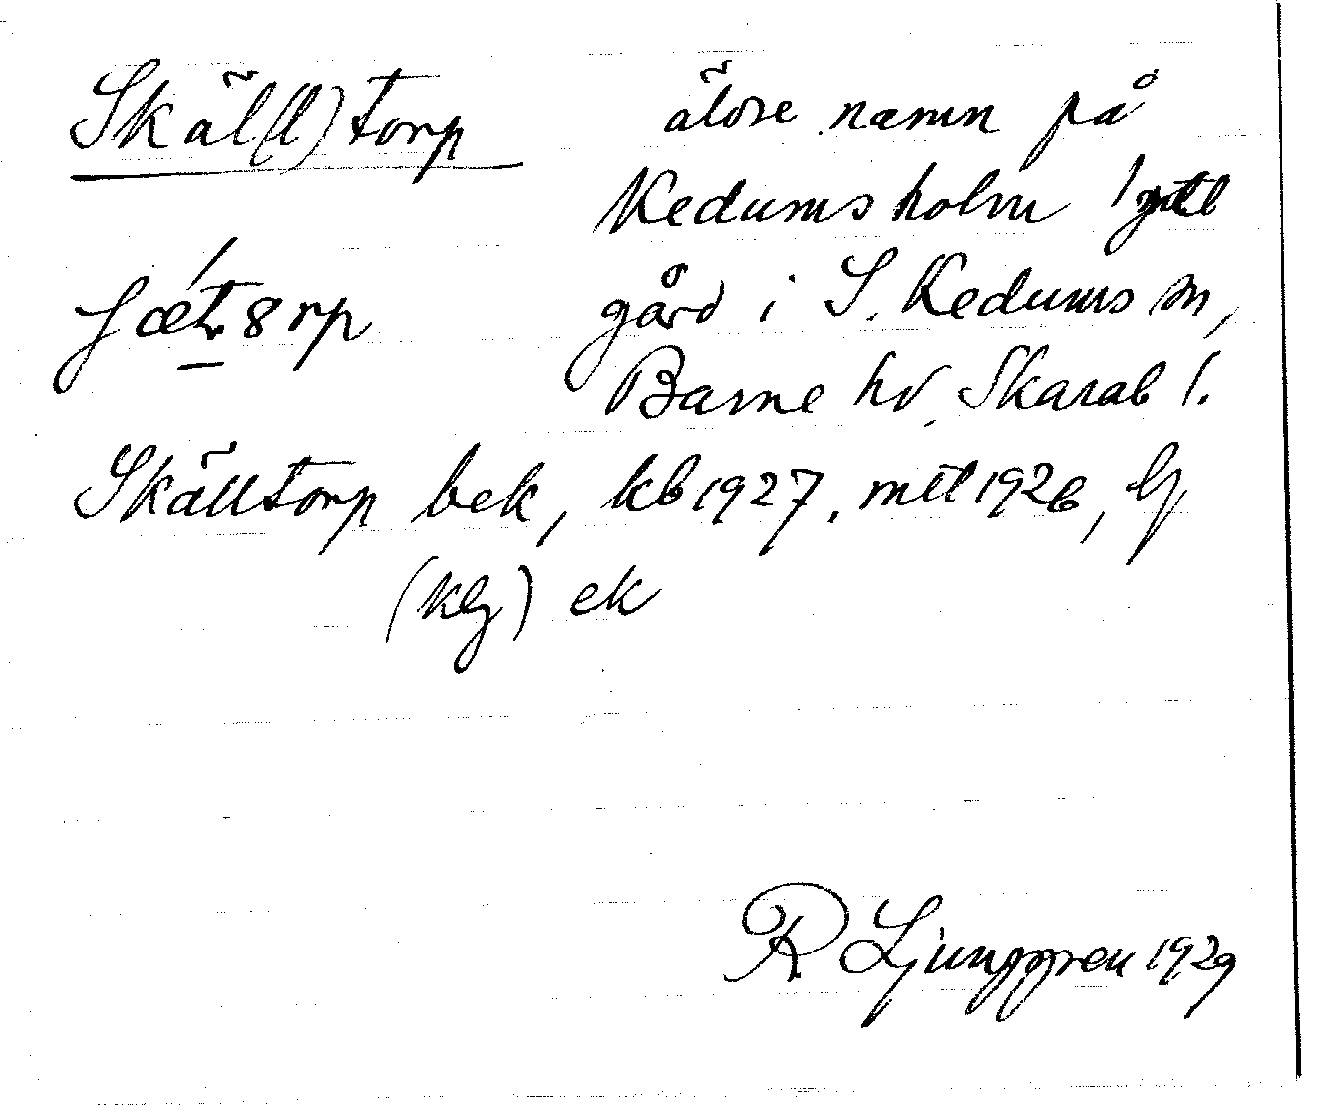 Skäl(l)torp äldre namn på
Kedumsholm 1 mtl
ʃæ̀t8rp gård i S. Kedums sn,
Barne hd, Skarab l.
Skälltorp bek, kb 1927, mtl 1926,
(klg) ek
R Ljunggren 1929